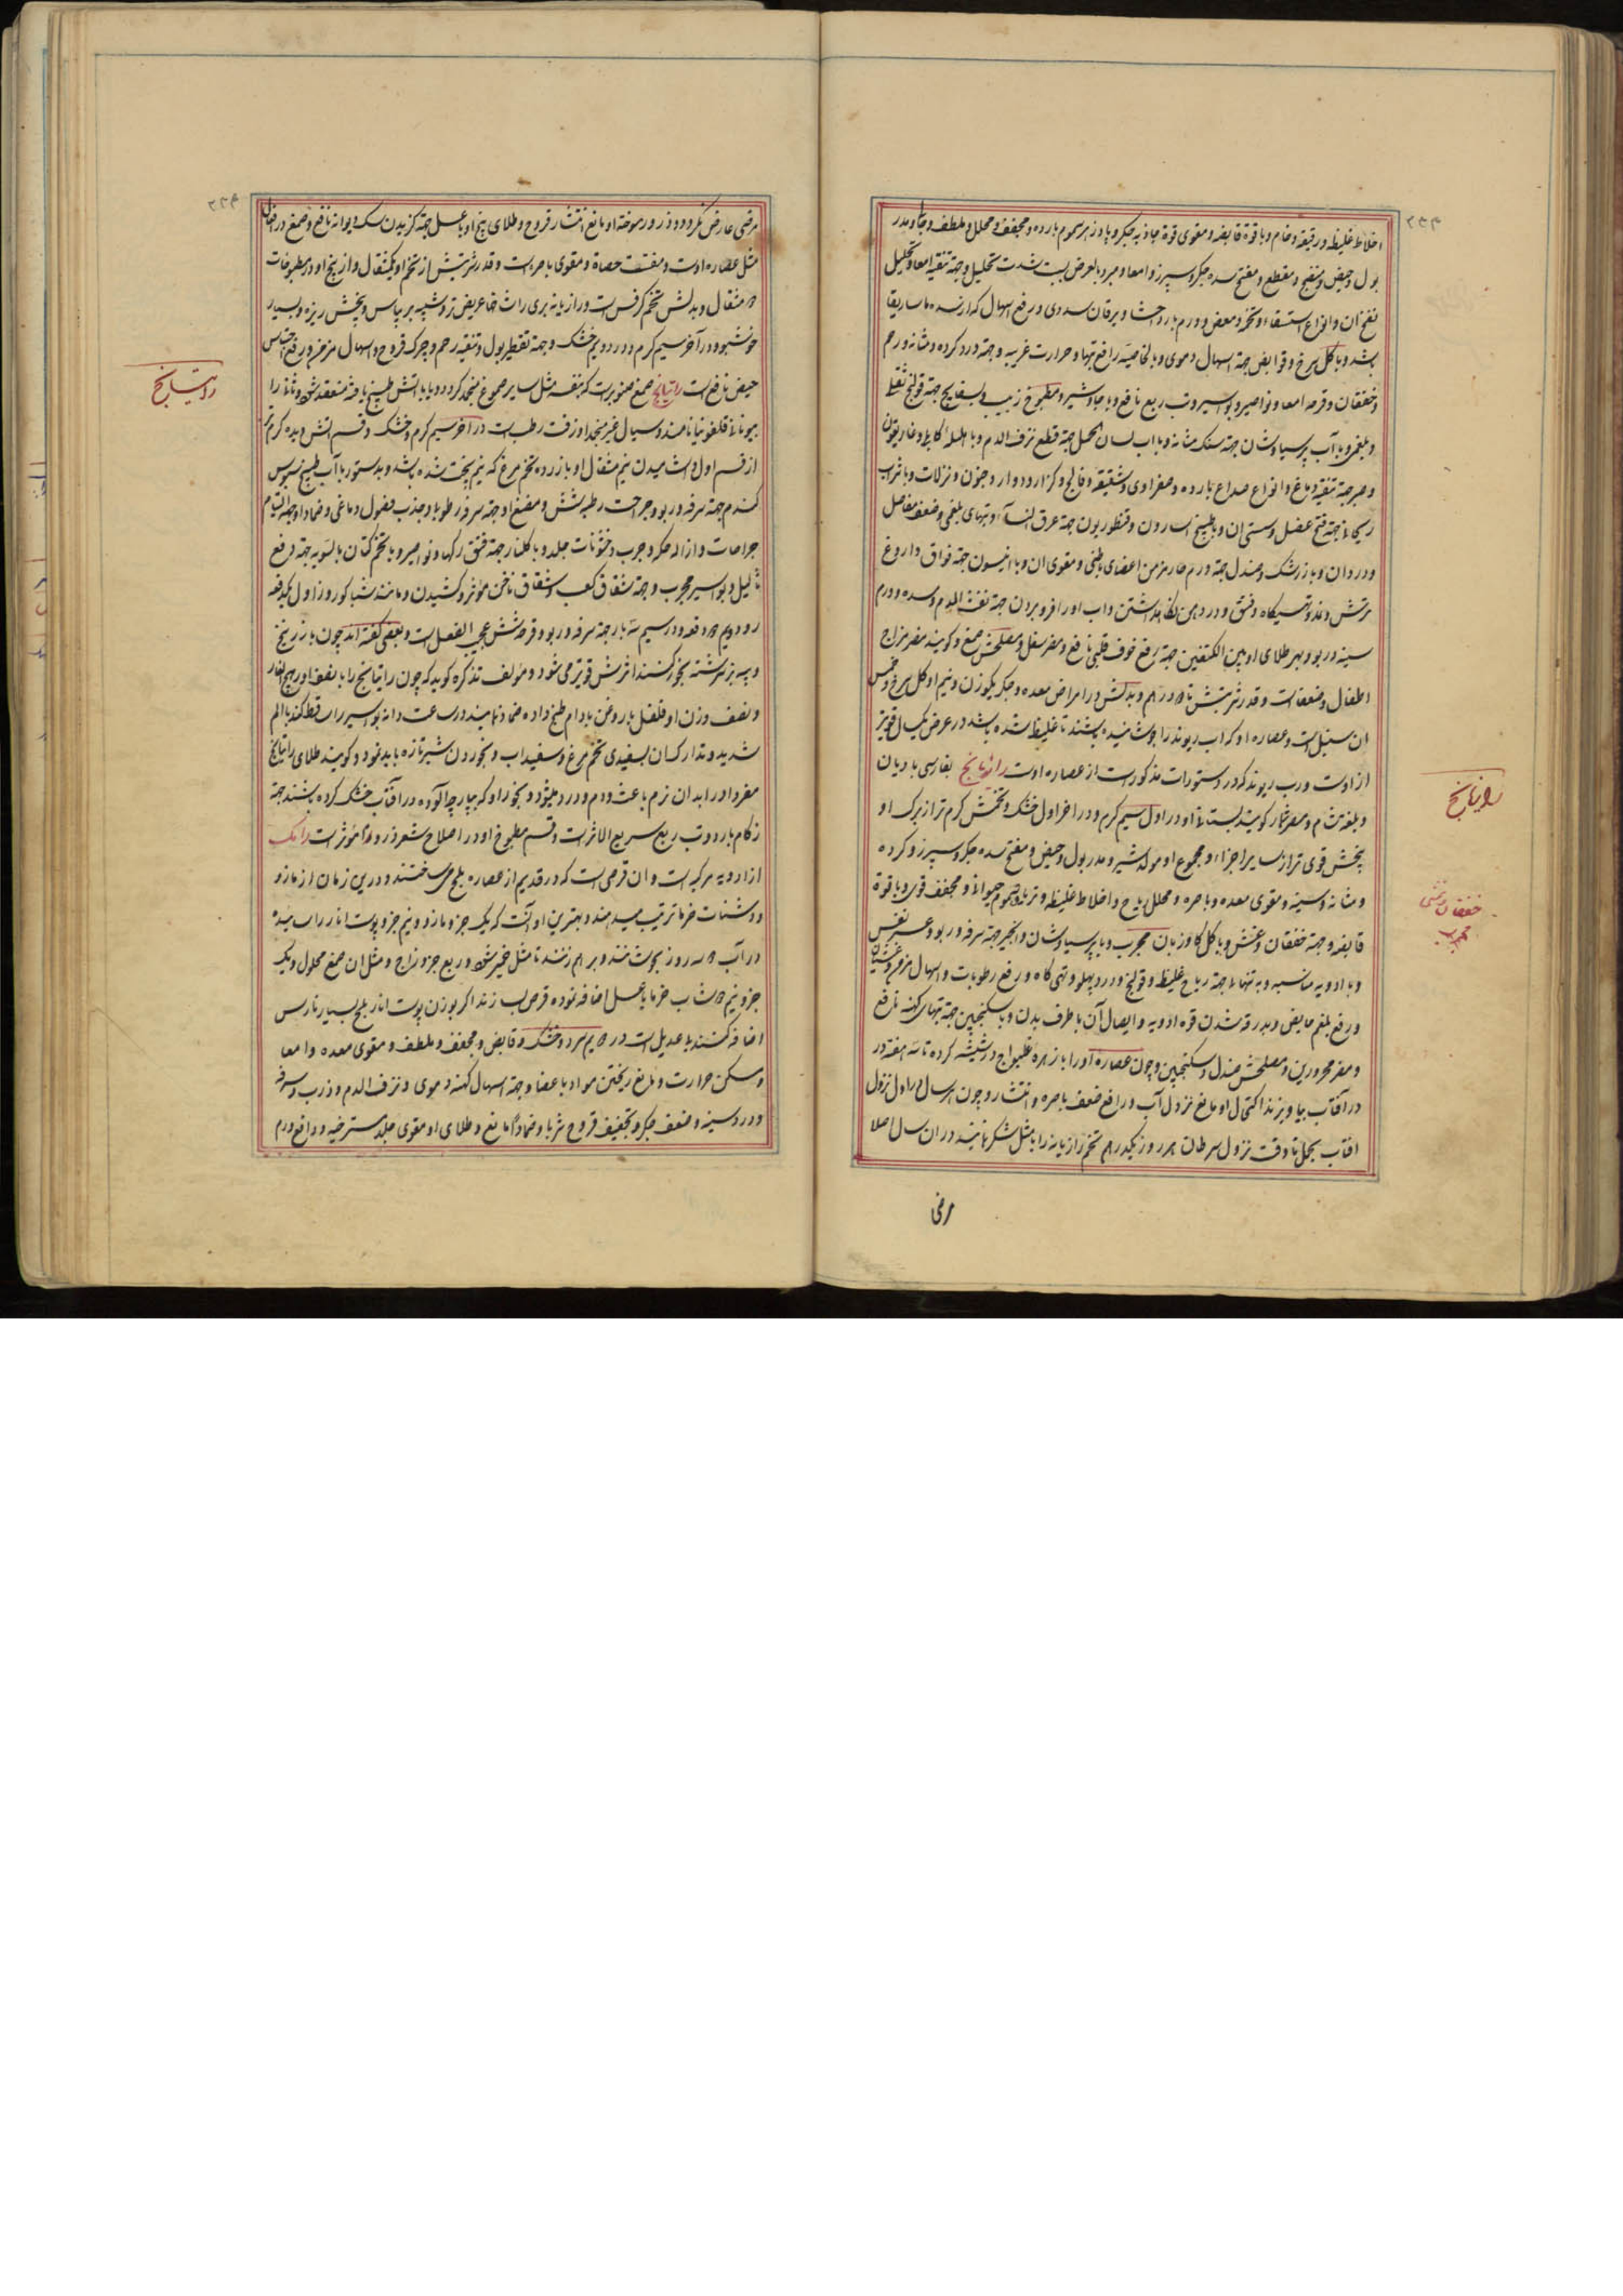 اخلاط غلیظه و رقیقه و خام و با قوة قابضه و مقوی قوة جاذبه جکر و پادزهر سموم بارده و مجفف و محلل و ملطف و جالی و مدر
بول و حیض و منضج و مقطع و مفتح سده جکر و سپرز و امعا و مبرد بالعرض بسبب شدت تحلیل و جهة تنقیه امعا و تحلیل
نفخ آن و انواع استسقاء و تخمه و مغص و ورم بارد احشا و یرقان سددی و رفع اسهال که از سده ماساریقا
باشد و با کل سرخ و قوابض جهة اسهال دموی و بالخاصیه رافع تبها و حرارت غریبه و جهة درد کرده و مثانه و رحم
و خفقان و قرحه امعا و نواصیر و بواسیر و تب ربع نافع و با جاوشیر و مطبوخ زبیب و بسفایج جهة قولنج ثفلی
و بلغمی و با آب پرسیاوشان جهة سنک مثانه و با آب لسان الحمل جهة قطع نزف الدم و با هلیلهٔ کابلی و غاریقون
و صبر جهة تنقیه دماغ و انواع صداع بارده و صفراوی و شقیقه و فالج و کزاز و دوار و جنون و نزلات و با شراب
ریحانی جهة فتخ عضل و سستی آن و با طبیخ اسارون و قنطوریون جهة عرق النسا و تبهای بلغمی و ضعف مفاصل
و درد آن و با زرشک و صندل جهة ورم حار مزمن اعضای باطنی و مقوی آن و با انیسون جهة فواق و آروغ
ترش و تهیکاه و فتق و در دهن نکاهداشتن و آب او را فرو بردن جهة نفث الدم و سده و ورم
سینه و ربو و بهر طلای او بین الکتفین جهة رفع خوف قلبی نافع و مضر سفل و مصلحش صمغ و کویند مضر مزاج
اطفال و ضعفاست و قدر شربتش تا درهم و بدلش در امراض معده و جکر یکوزن و نیم او کل سرخ و خمس
آن سنبل است و عصاره او که آب ریوند را جوشانیده باشند تا غلیظ شده باشد در عرض یکسال قویتر
از اوست و رب ریوند که در دستورات مذکور است از عصاره اوست رازیانج بفارسی بادیان
و بلغة شام و مصر شمار کویند بستانی او در اول سیم کرم و در آخر اول خشک و تخمش کرم تر از برک او
بیخش قوی تر از سایر اجزاء و مجموع او مولد شیر و مدر بول و حیض و مفتح سده جکر و سپرز و کرده
و مثانه و سینه و مقوی معده و باصره و محلل ریاح و اخلاط غلیظه و تریاق سموم حیوانی و مجفف قوی و با قوة
قابضه و جهة خفقان و غشی و با کل کاوزبان مجرب و با پرسیاوشان و انجیر جهة سرفه و ربو و عسر نفس
و با ادویه مناسبه و به تنهائی جهة ریاح غلیظه و قولنج و درد پهلو و تهی کاه و رفع رطوبات و اسهال مزمن و غثیان
و رفع بلغم حامض و بدرقه شدن قوه ادویه و ایصال آن باطراف بدن و با سکنجبین جهة تبهای کهنه نافع
و مضر محرورین و مصلحش صندل و سکنجبین و چون عصاره او را با زهره غلیواج در شیشه کرده تا سه هفته در
در آفتاب بیاویزند اکتحال او مانع نزول آب و رافع ضعف باصره و انتشار و چون هر سال از اول نزول
آفتاب بحمل تا وقت نزول سرطان هر روز یکدرهم تخم رازیانه را با مثل شکر بنوشند در آن سال اصلا
مرضی
رازیانج
خفقان و غشی
مجرب
۲۳۳
مرضی عارض نکردد و ذرور سوخته او مانع انتشار قروح و طلای بیخ او با عسل جهة کزیدن سک دیوانه نافع و صمغ
مثل عصاره اوست و مفتت حصاة و مقوی باصره است و قدر شربتش از تخم او یکمثقال و از بیخ او در مطبوخات
مثقال و بدلش تخم کرفس است و رازیانه بری را شاخها عریض تر و شبیه ببسپاس و بیخش ریزه و بسیار
خوشبو و در آخر سیم کرم و در دویم خشک و جهة تقطیر بول و تنقیه رحم و چرک قروح و اسهال مزمن و رفع احتباس
حیض نافع است راتیانج صمغ صنوبر است که بنفسه مثل سایر صموغ منجمد کردد و یا با آتش طبخ یافته منعقد شود و ثانی را
بیونانی قلفونیا نامند و سیال غیر منجمد او زفت رطب است در آخر سیم کرم و خشک و قسم آتش دیده کرم تر
از قسم اول و آشامیدن نیم مثقال او با زرده تخم مرغ که نیم پخت شده باشد و بدستور با آب طبیخ سبوس
کندم جهة سرفه و ربو و جراحت رطبه شش و مضغ او جهة سرفه رطوبی و جذب فضول دماغی و ضماد او جهة التیام
جراحات و ازاله حکه و جرب و خشونات جلد و با کلنار جهة فتق رکها و نواصیر و با تخم کتان بالسویه جهة رفع
ثآلیل و بواسیر مجرب و جهة شقاق کعب و شقاق ناخن مؤثر و کشیدن و مانند تنباکو روز اول یکدفعه
روز دویم دو دفعه و در سیم سه بار جهة سرفه و ربو و قرحه شش عجیب الفعل است و بعضی کفته اند چون با زرنیخ
و پیه بز سرشته بخور کنند اثرش قویتر می شود و مؤلف تذکره کوید که چون راتیانج را با نصف او ریج الفار
و نصف وزن او فلفل با روغن بادام طبخ داده ضماد نمایند در ساعت دانه بواسیر را ساقط کند با الم
شدید و تدارک آن بسفیدی تخم مرغ و سفیداب و بخوردن شیر تازه باید نمود و کویند طلای راتیانج
مفردا در ابدان نرم باعث ورم و درد میشود و بخور او که بپارچه آلوده در آفتاب خشک کرده باشند جهة
زکام بارد و تب ربع سریع الاثر است و قسم مطبوخ او در اصلاح شعر زرد و ... مؤثر است رامک
از ادویه مرکبه است و آن قرصی است که در قدیم از عصاره بلح می ساختند و درین زمان از مازو
و دوشاب خرما ترتیب میدهند و بهترین او آنست که یک جزو مازو و نیم جزو پوست انار را سائیده
در آب سه روز بجوشانند و بر هم زنند تا مثل خمیر شود و ربع جزو زاج و مثل آن صمغ محلول و یک
جزو نیم دوشاب خرما یا عسل اضافه نموده قرص بسازند و اکر بوزن پوست انار بلح بسیار نارس
اضافه کنند بی عدیل است در دویم سرد و خشک و قابض و مجفف و ملطف و مقوی معده و امعا
و مسکن حرارت و مانع ریختن مواد باعضا و جهة اسهال کهنه دموی و نزف الدم و ذرب و سرفه
و درد سینه و ضعف جکر و تجفیف قروح شربا و ضمادا نافع و طلای او مقوی جلد مسترخیه و رافع ورم
راتیانج
۲۳۴